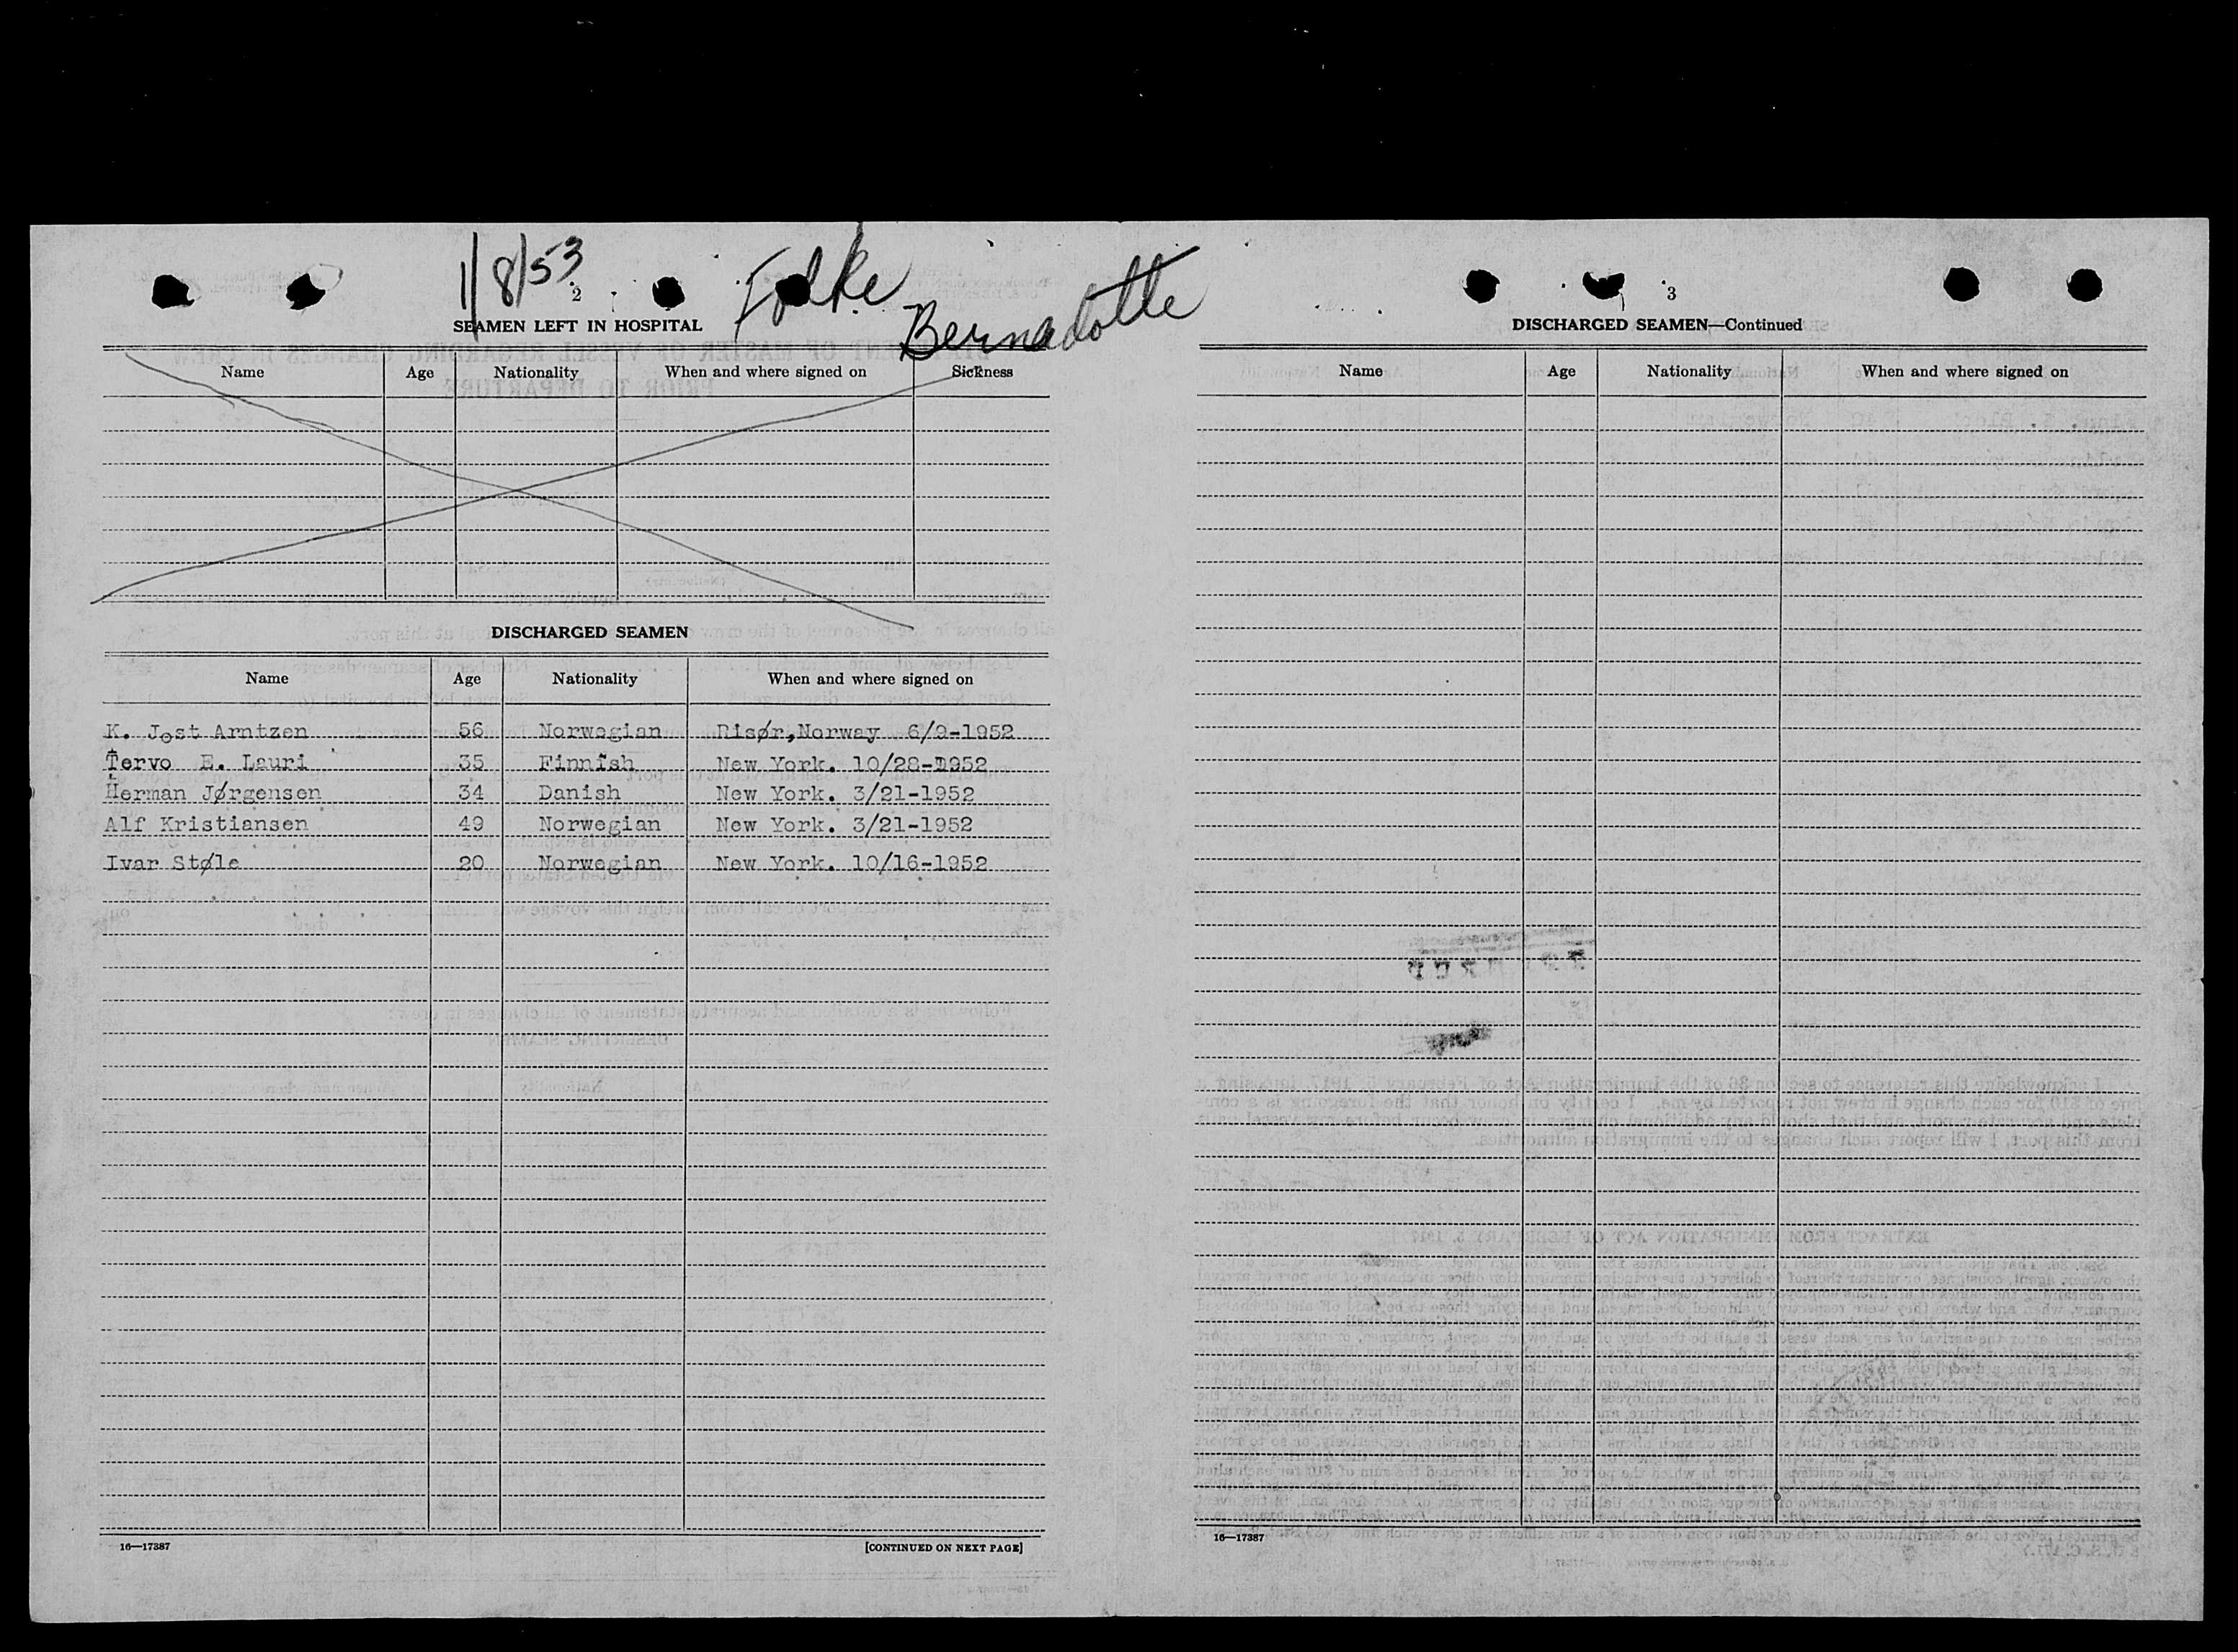 1/8/53 Folke
Bernadotte
2
SEAMEN LEFT IN HOSPITAL
Name Age Nationality When and where signed on Sickness
DISCHARGED SEAMEN
Name Age Nationality When and where signed on
K. Jost Arntzen 56 Norwegian Risør,Norway 6/9-1952
Tervo E. Lauri 35 Finnish New York. 10/28-1952
Herman Jørgensen 34 Danish New York. 3/21-1952
Alf Kristiansen 49 Norwegian New York. 3/21-1952
Ivar Støle 20 Norwegian New York. 10/16-1952
16—17387 [CONTINUED ON NEXT PAGE]
3
DISCHARGED SEAMEN—Continued
Name Age Nationality When and where signed on
16—17387